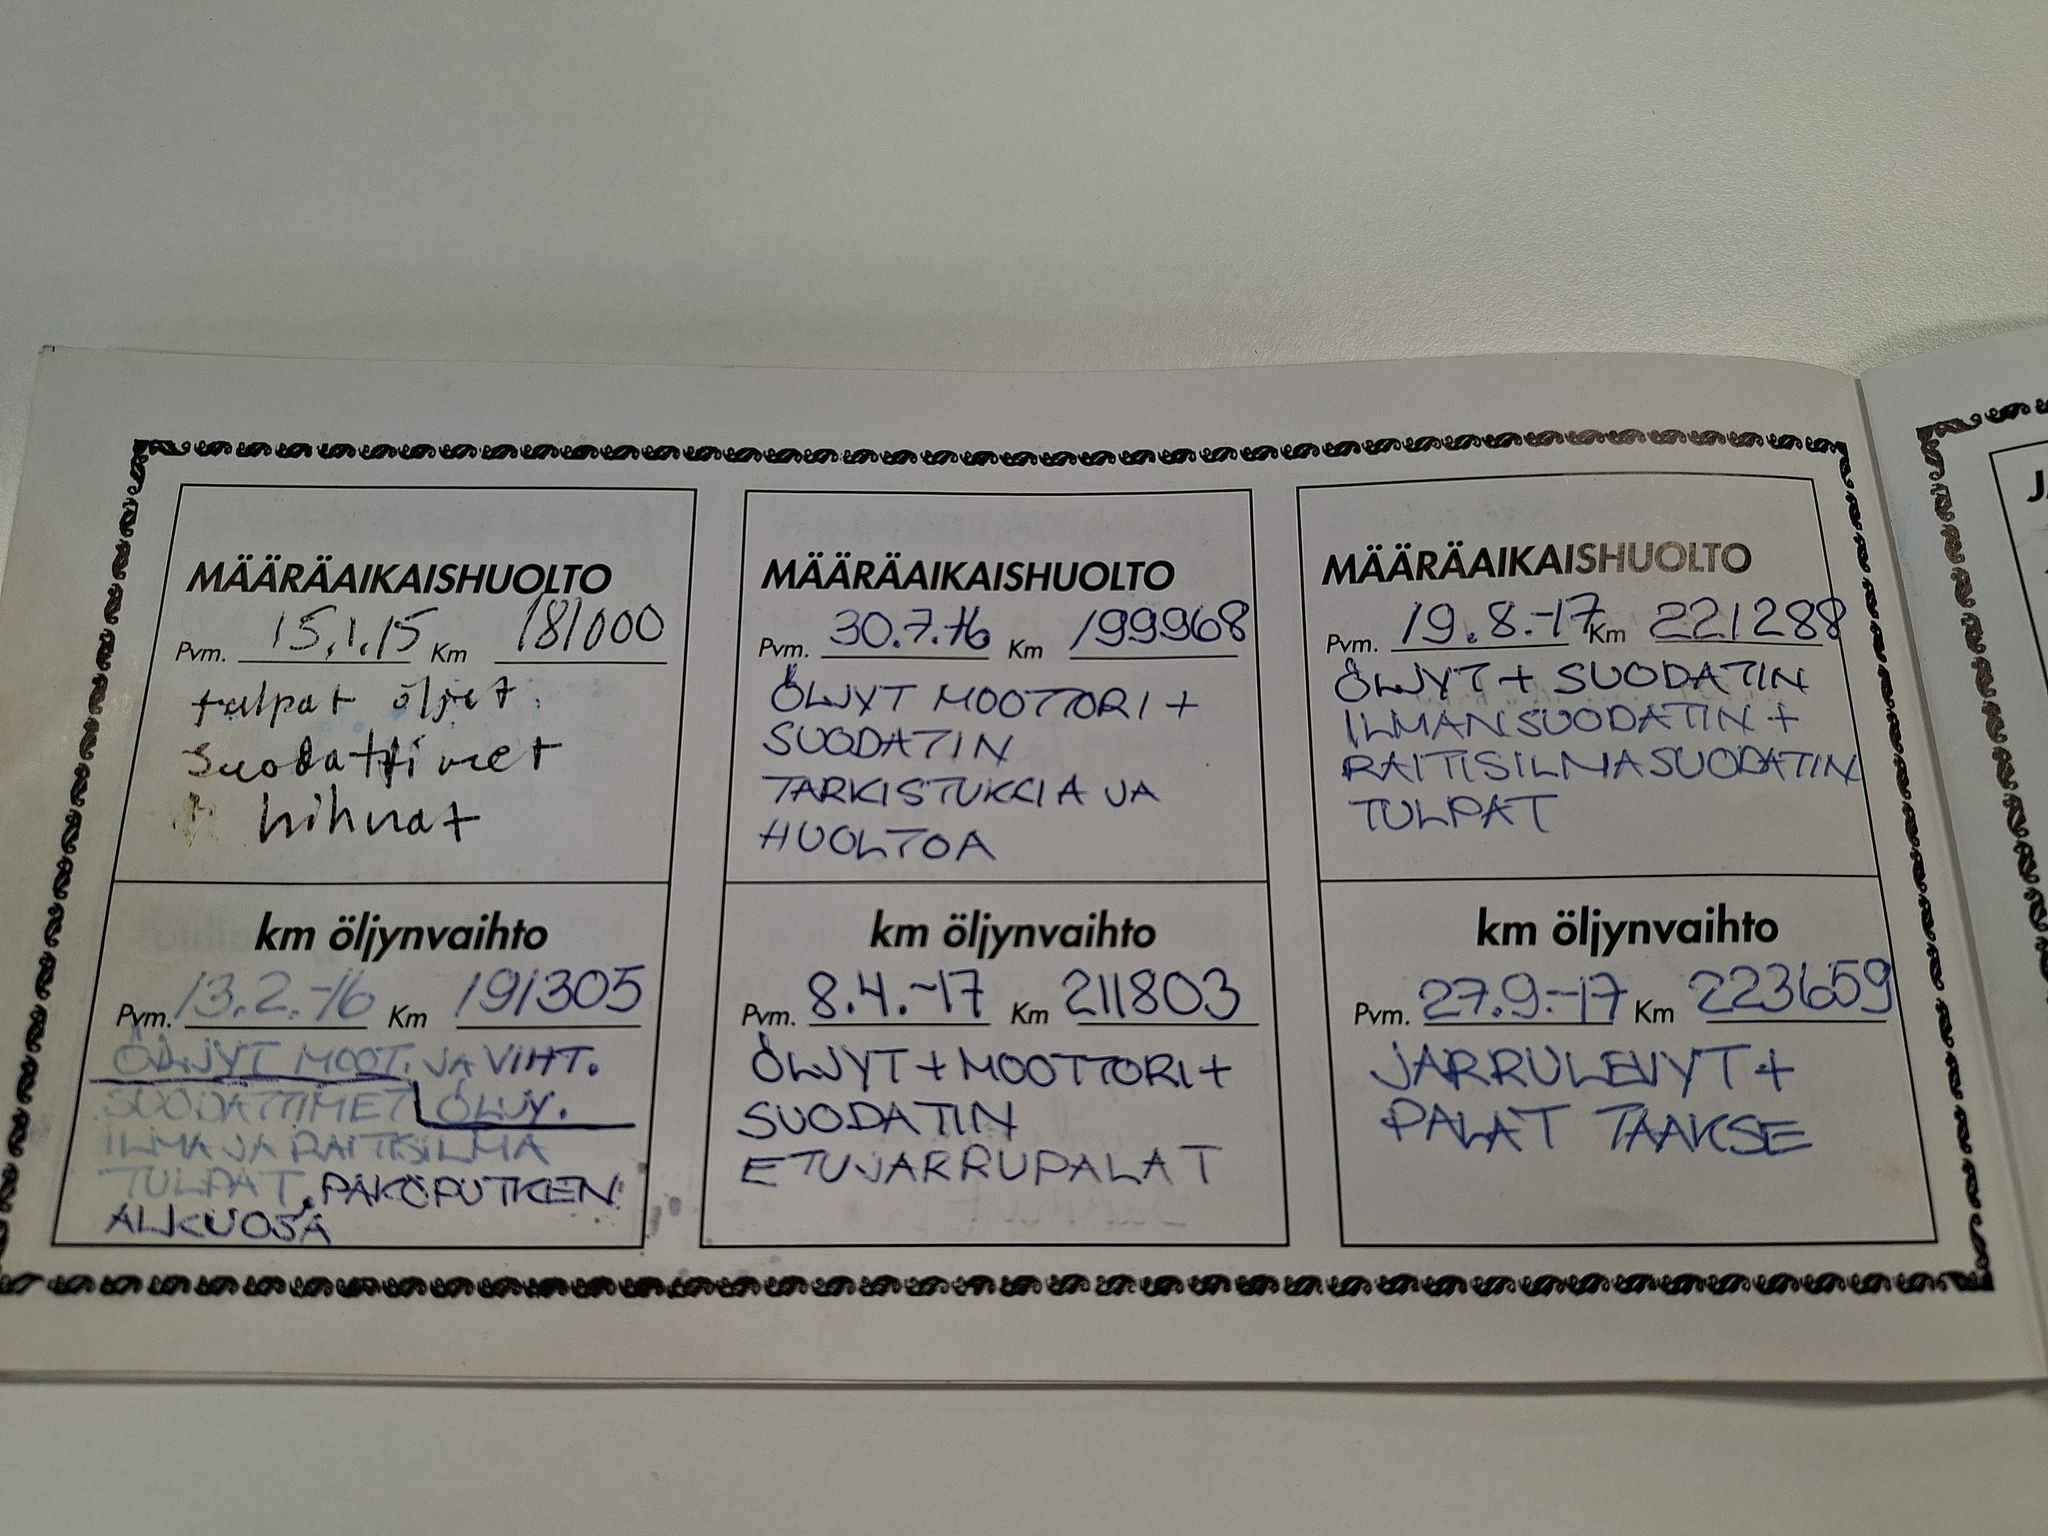 MÄÄRÄAIKAISHUOLTO
Pvm. 15.1.15 Km 181000
tulpat öljyt
suodattimet
hihnat
km öljynvaihto
Pvm. 13.2.-16 Km 191305
ÖLJYT MOOT. JA VIHT.
SUODATTIMET ÖLJY.
ILMA JA RAITISILMA
TULPAT, PAKOPUTKEN
ALKUOSA
MÄÄRÄAIKAISHUOLTO
Pvm. 30.7.-16 Km 199968
ÖLJYT MOOTTORI +
SUODATIN
TARKISTUKSIA JA
HUOLTOA
km öljynvaihto
Pvm. 8.4.-17 Km 211803
ÖLJYT + MOOTTORI +
SUODATIN
ETUJARRUPALAT
MÄÄRÄAIKAISHUOLTO
Pvm. 19.8.-17 Km 221288
ÖLJYT + SUODATIN
ILMANSUODATIN +
RAITISILMASUODATIN
TULPAT
km öljynvaihto
Pvm. 27.9.-17 Km 223659
JARRULEVYT +
PALAT TAAKSE